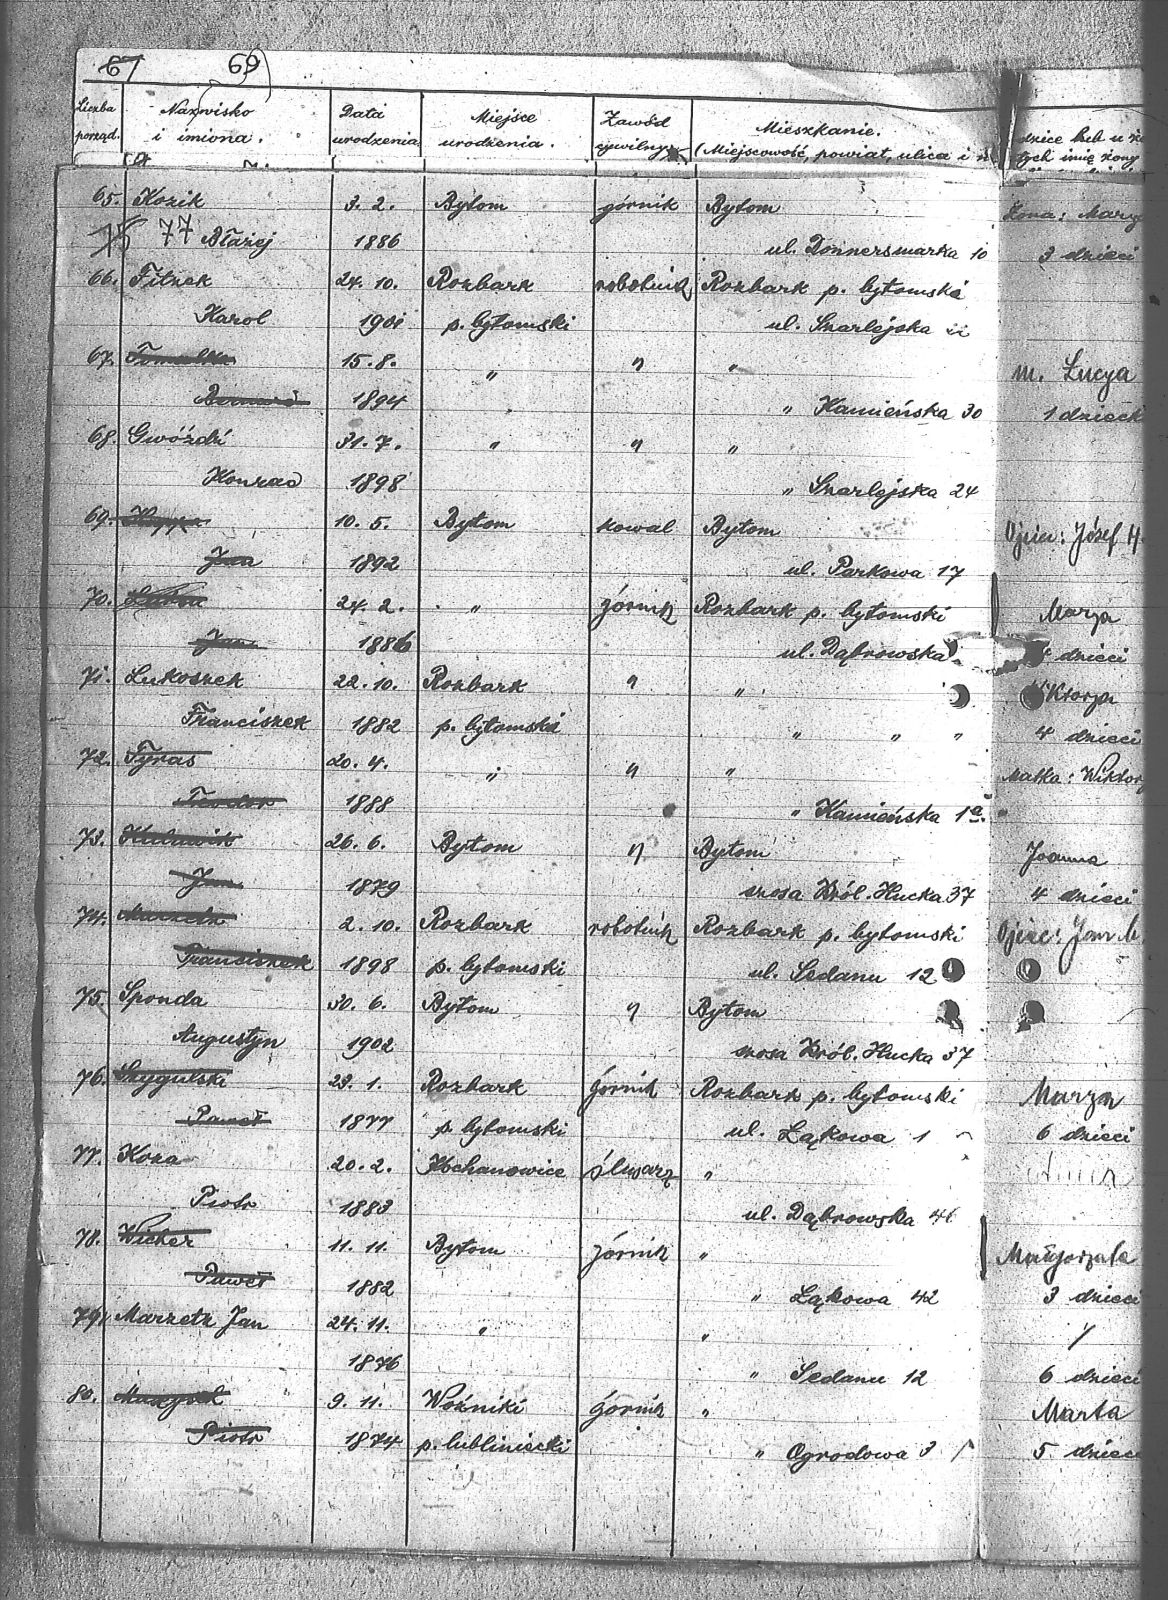 67 69
Liczba porząd. Nazwisko i imiona. Data urodzenia Miejsce urodzenia. Zawód cywilny Mieszkanie. (Miejscowość, powiat, ulica i n
dzice lub u żo
tych imię żony
65. Kozik 3. 2. Bytom górnik Bytom Żona: Marya
77 Błażej 1886 ul. Donnersmarka 10 3 dzieci
66. Fitzek 24. 10. Rozbark robotnik Rozbark p. bytomski
Karol 1901 p. bytomski ul. Szarlejska
67. Tomalka 15. 8. " " " m. Lucya
Bernard 1894 " Kamieńska 30 1 dzieck
68. Gwóźdź 31. 7. " " "
Konrad 1898 " Szarlejska 24
69. 10. 5. Bytom kowal Bytom Ojciec: Józef H
Jan 1892 ul. Parkowa 17
70. 24. 2. " górnik Rozbark p. bytomski Marya
Jan 1886 ul. Dąbrowska dzieci
71. Lukoszek 22. 10. Rozbark " "
Franciszek 1882 p. bytomski " " " 4 dzieci
72. Tyras 20. 4. " " " Matka: Wiktory
Teodor 1888 " Kamieńska 1a.
73. 26. 6. Bytom " Bytom Joanna
Jan 1879 szosa Król. Hucka 37 4 dzieci
74. Marzetz 2. 10. Rozbark robotnik Rozbark p. bytomski Ojciec: Jan
Franciszek 1898 p. bytomski ul. Sedanu 12
75. Sponda 30. 6. Bytom " Bytom
Augustyn 1902 szosa Król. Hucka 37
76. Szygulski 23. 1. Rozbark górnik Rozbark p. bytomski Marya
Paweł 1877 p. bytomski ul. Łąkowa 1 6 dzieci
77. Koza 20. 2. Kochanowice ślusarz "
Piotr 1883 ul. Dąbrowska 46
78. Wicher 11. 11. Bytom górnik " Małgorzata
Paweł 1882 " Łąkowa 42 3 dzieci
79. Marzetz Jan 24. 11. " "
1876 " Sedanu 12 6 dzieci
80. 9. 11. Woźniki górnik " Marta
Piotr 1874 p. lubliniecki " Ogrodowa 3 5 dzieci